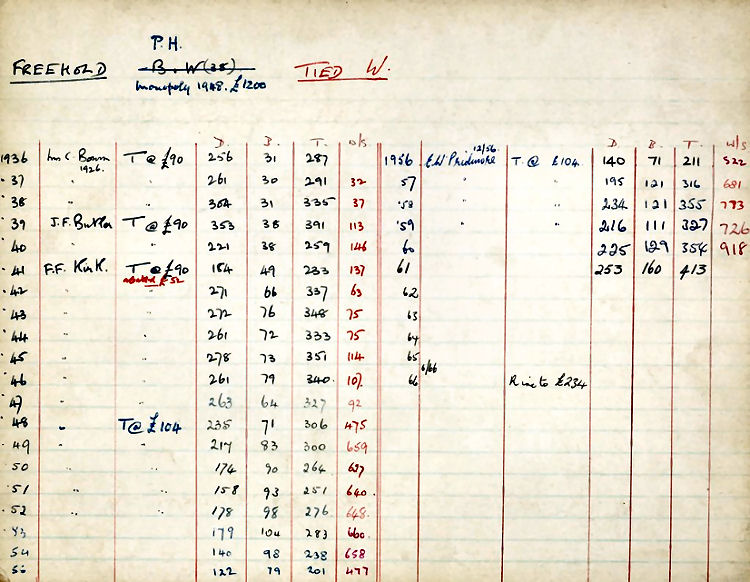 P.H.
FREEHOLD B.W(38) TIED W.
Monopoly 1948. £1200
D. B. T. w/s D. B. T. w/s
1936 Mrs C. T @ £90 256 31 287 1956 E.W Pridmore 12/56 T. @ £104 140 71 211 522
1926.
37 " " 261 30 291 32 57 " " 195 121 316 681
38 " " 304 31 335 37 58 " " 234 121 355 793
39 J.F. Butler T @ £90 353 38 391 113 59 " " 216 111 327 726
40 " " 221 38 259 146 60 225 129 354 918
41 F.F. Kirk. T @ £90 184 49 233 137 61 253 160 413
£52
42 " " 271 66 337 63 62
43 " " 272 76 348 75 63
44 " " 261 72 333 75 64
45 " " 278 73 351 114 65
46 " " 261 79 340 107. 66 6/66 Rise to £234
47 " " 263 64 327 92
48 " T@ £104 235 71 306 475
49 " " 217 83 300 659
50 " " 174 90 264 627
51 " " 158 93 251 640.
52 " " 178 98 276 648.
53 179 104 283 660.
54 140 98 238 658
122 79 201 477